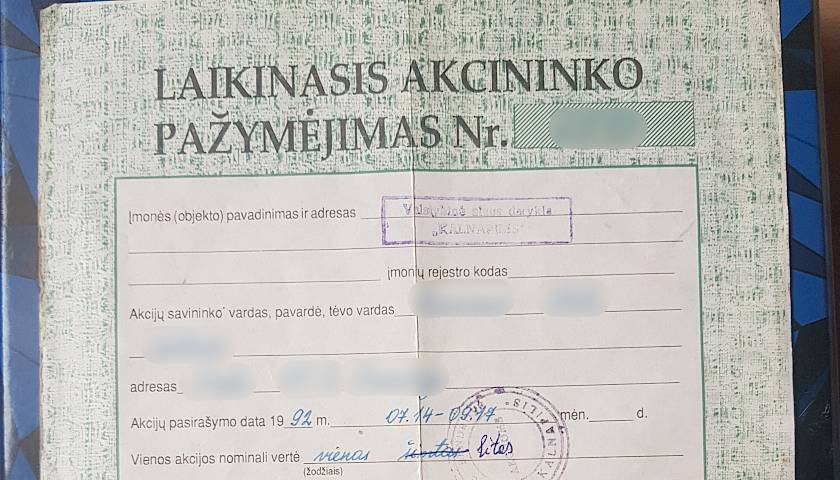 LAIKINASIS AKCININKO
PAŽYMĖJIMAS Nr.
Įmonės (objekto) pavadinimas ir adresas Valstybinė alaus darykla
„KALNAPILIS"
įmonių rejestro kodas
Akcijų savininko vardas, pavardė, tėvo vardas
adresas
Akcijų pasirašymo data 19 92 m. 07.14-09.17 mėn. d.
Vienos akcijos nominali vertė vienas šimtas litas
(žodžiais)
KALNAPILIS